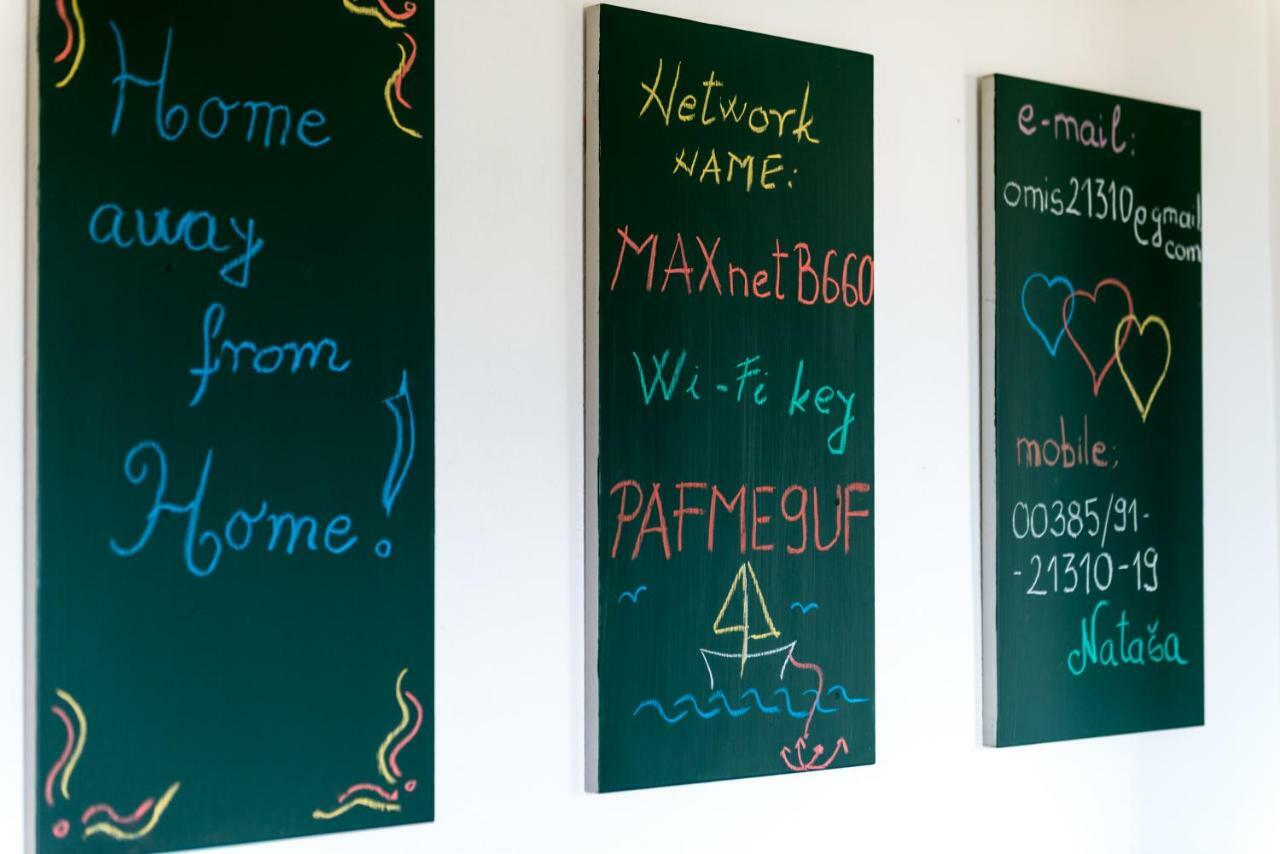 Home
away
from
Home!
Network
NAME:
MAXnetB660
Wi-Fi key
PAFME9UF
e-mail:
omis21310@gmail
com
mobile:
00385/91-
-21310-19
Nataša